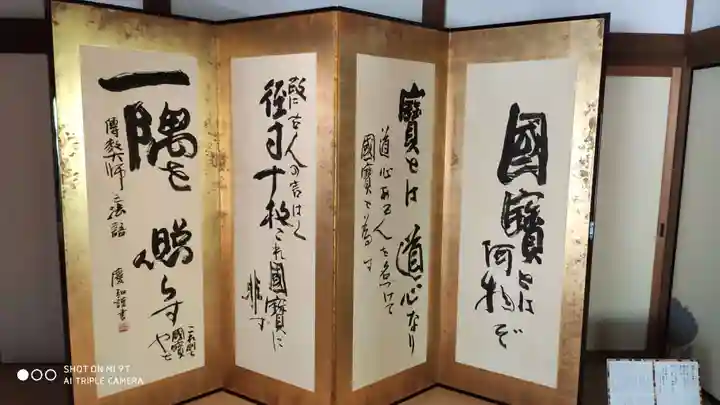 國寶とは
何物ぞ
寶とは道心なり
道心ある人を名づけて
國寶と為す
故に古人の言はく
径寸十枚これ國寶に
非ず
一隅を
照らす
これ則ち
國寶
なりと
傳教大師
法語
慶
謹書
SHOT ON MI 9T
AI TRIPLE CAMERA